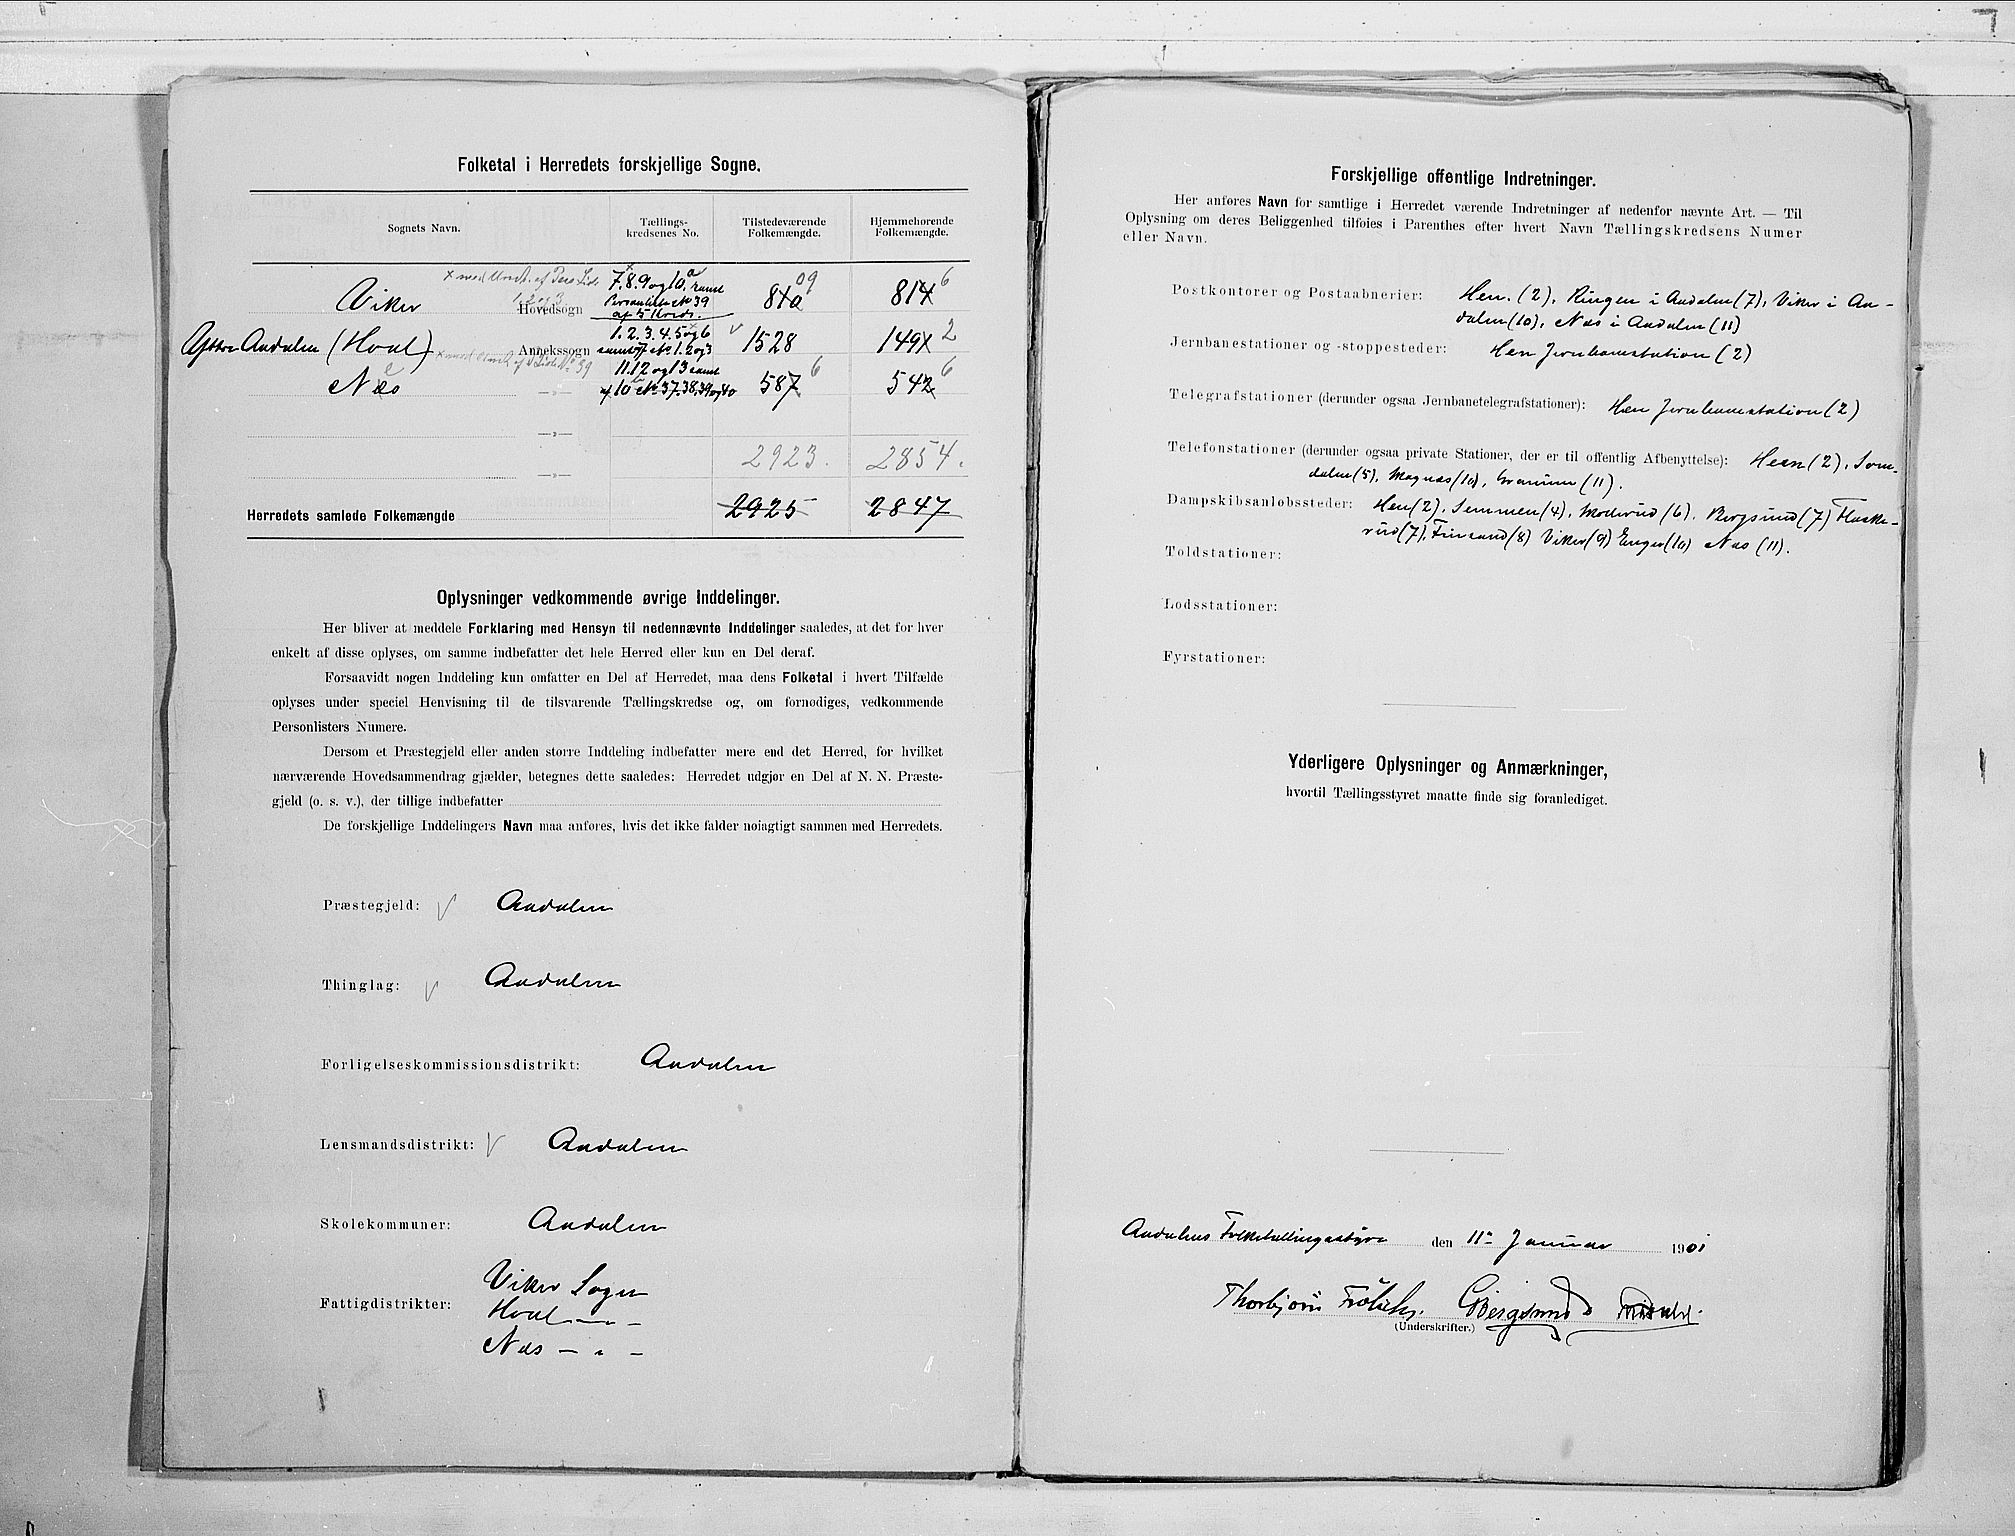 Folketal i Herredets forskjellige Sogne.
Sognets Navn.
Tællings-
kredsenes No.
Tilstedeværende
Folkemængde.
Hjemmehørende
Folkemængde.
Viker Hovedsogn 7.8.9 og 10, samt 810 09 814 6
Personliste No 39
af 5 Kreds.
Yttre Aadalen (Hval) Annekssogn 1.2.3.4.5 og 6 1528 1491 2
samt af 7 No 1.2 og 3
Næs 11.12 og 13 samt 587 6 542 6
af 10 No 37.38.39 og 40
2923. 2854.
Herredets samlede Folkemængde 2925 2847
Oplysninger vedkommende øvrige Inddelinger.
Her bliver at meddele Forklaring med Hensyn til nedennævnte Inddelinger saaledes, at det for hver
enkelt af disse oplyses, om samme indbefatter det hele Herred eller kun en Del deraf.
Forsaavidt nogen Inddeling kun omfatter en Del af Herredet, maa dens Folketal i hvert Tilfælde
oplyses under speciel Henvisning til de tilsvarende Tællingskredse og, om fornødiges, vedkommende
Personlisters Numere.
Dersom et Præstegjeld eller anden større Inddeling indbefatter mere end det Herred, for hvilket
nærværende Hovedsammendrag gjælder, betegnes dette saaledes: Herredet udgjør en Del af N. N. Præste-
gjeld (o. s. v.), der tillige indbefatter
De forskjellige Inddelingers Navn maa anføres, hvis det ikke falder nøiagtigt sammen med Herredets.
Præstegjeld: Aadalen
Thinglag: Aadalen
Forligelseskommissionsdistrikt: Aadalen
Lensmandsdistrikt: Aadalen
Skolekommuner: Aadalen
Viker Sogn
Fattigdistrikter: Hval — " —
Næs — " —
Forskjellige offentlige Indretninger.
Her anføres Navn for samtlige i Herredet værende Indretninger af nedenfor nævnte Art. — Til
Oplysning om deres Beliggenhed tilføies i Parenthes efter hvert Navn Tællingskredsens Numer
eller Navn.
Postkontorer og Postaabnerier: Hen. (2), Ringen i Aadalen (7), Viker i Aa-
dalen (10), Næs i Aadalen (11)
Jernbanestationer og -stoppesteder: Hen Jernbanestation (2)
Telegrafstationer (derunder ogsaa Jernbanetelegrafstationer): Hen Jernbanestation (2)
Telefonstationer (derunder ogsaa private Stationer, der er til offentlig Afbenyttelse): Heen (2), Som-
dalen (5), Magnæs (10), Granum (11).
Dampskibsanløbssteder: Hen (2), Semmen (4), Moderud (6), Bergsund (7) Flaske-
rud (7), Finsand (8) Viker (9) Enger (10) Næs (11).
Toldstationer:
Lodsstationer:
Fyrstationer:
Yderligere Oplysninger og Anmærkninger,
hvortil Tællingsstyret maatte finde sig foranlediget.
Aadalens Folketællingsstyre den 11te Januar 1901
Thorbjørn Frøhlich. G Bergsund
(Underskrifter.)